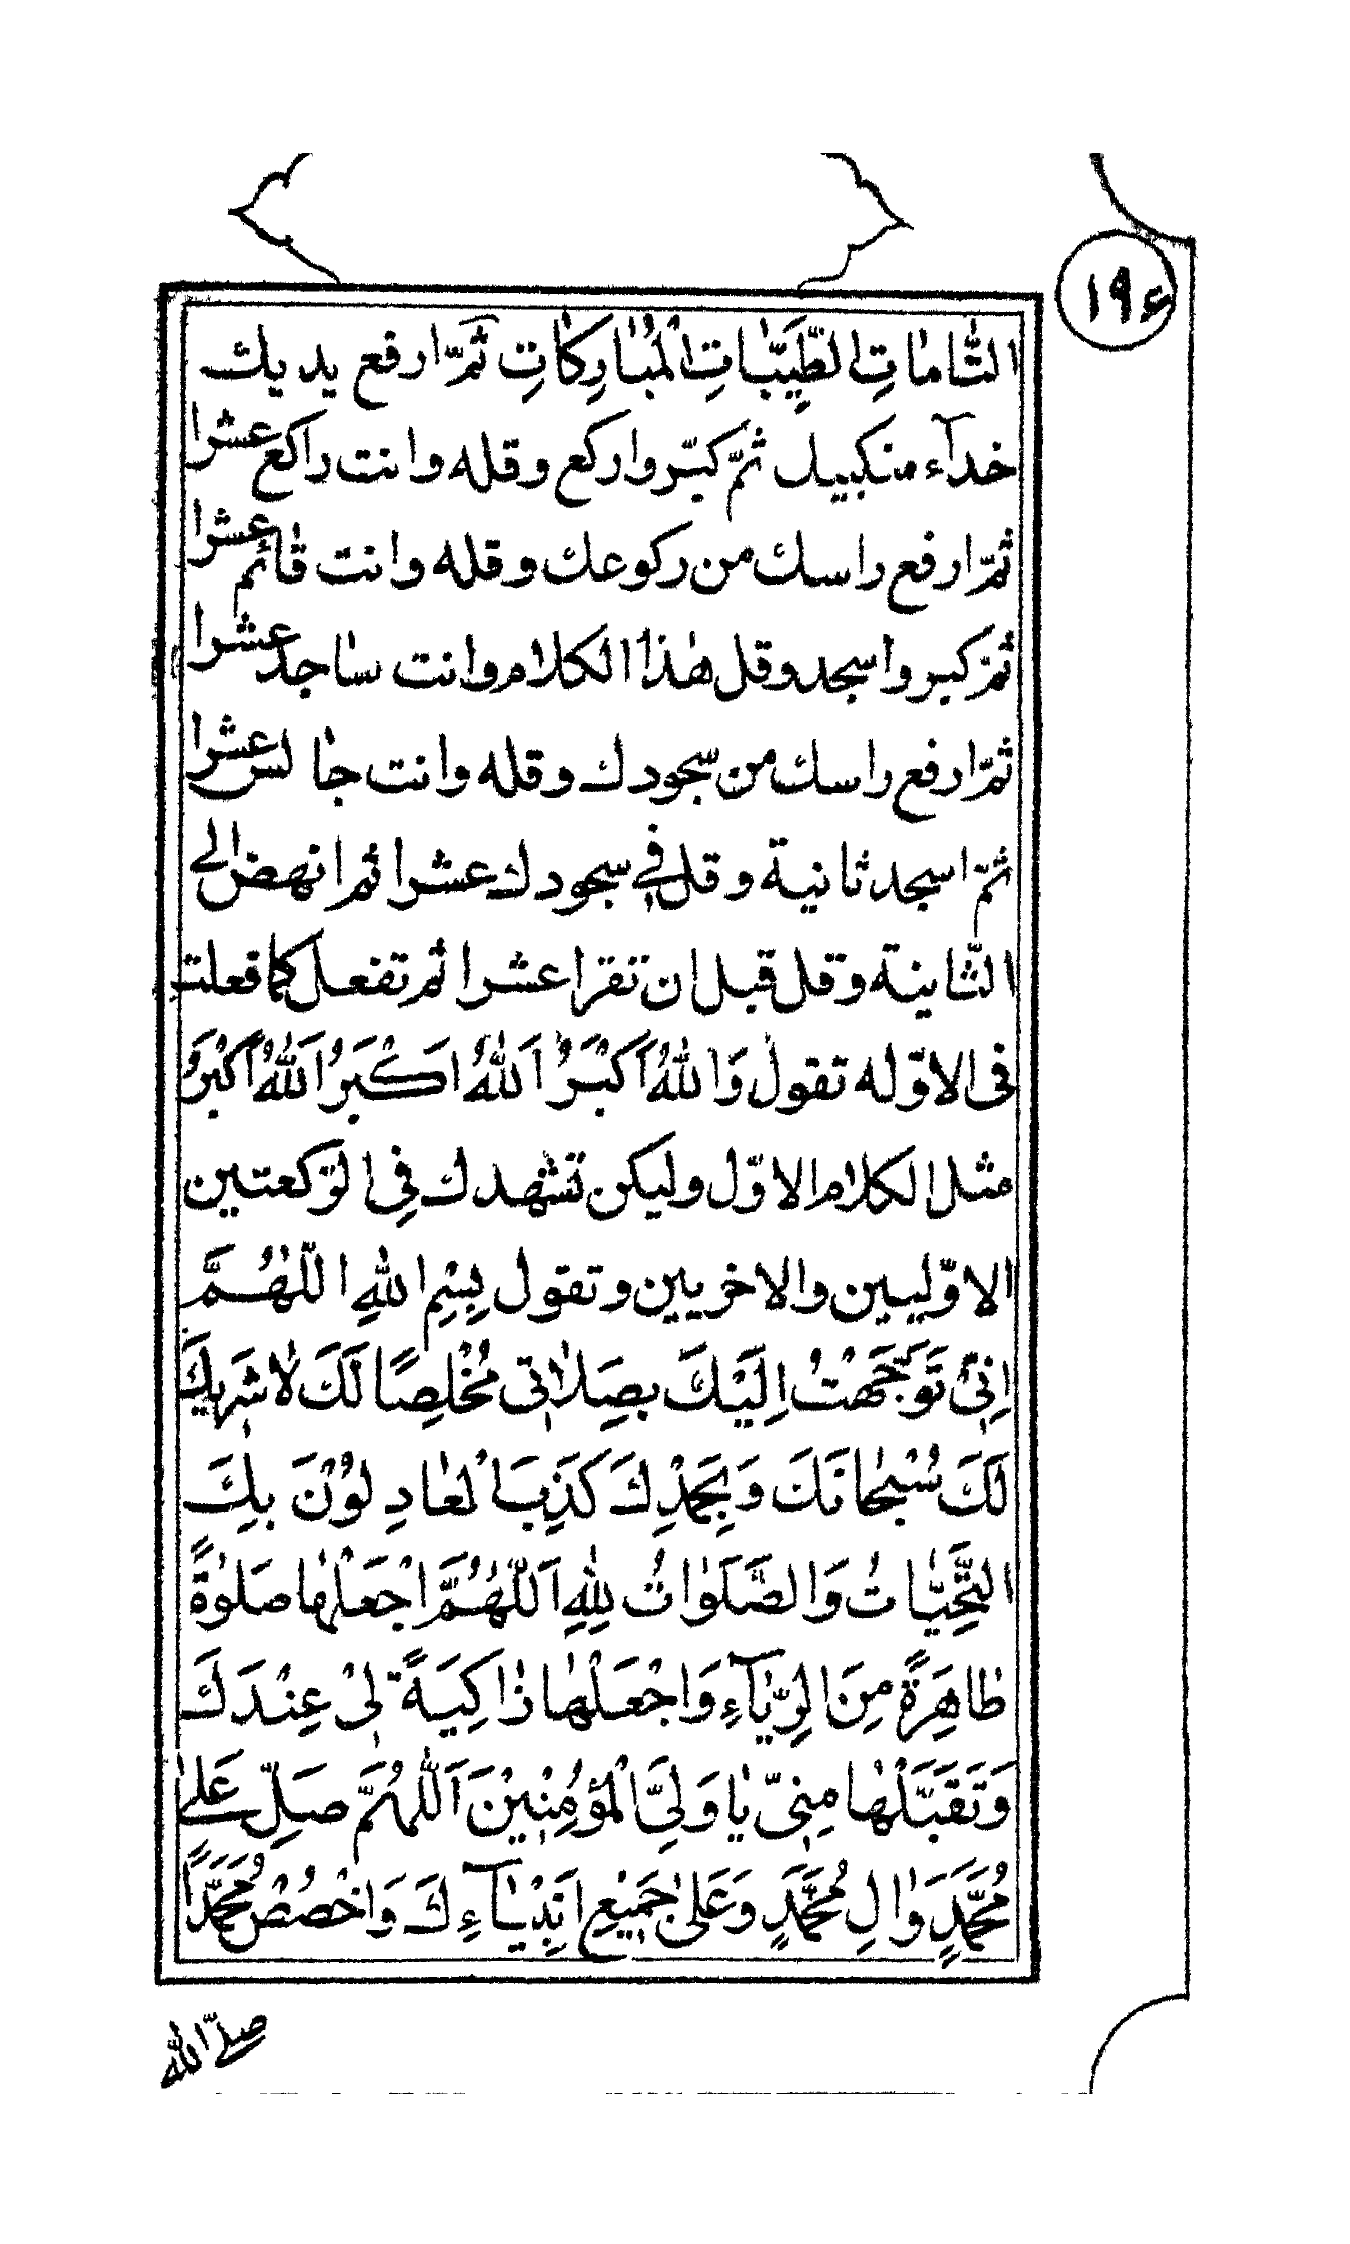 ۱۹۴
التّٰامٰاتِ الطَّيِّبٰاتِ الْمُبٰارِكٰاتِ ثمّ ارفع يديك
خدآء منكبيك ثمّ كبّر واركع وقله وانت راكع عشرا
ثمّ ارفع راسك من ركوعك وقله وانت قائم عشرا
ثمّ كبر واسجد وقل هٰذا الكلام وانت ساجد عشرا
ثمّ ارفع راسك من سجودك وقله وانت جالس عشرا
ثمّ اسجد ثانية وقل فى سجودك عشرا ثم انهض الى
الثّانية وقل قبل ان تقرا عشرا ثم تفعل كما فعلت
فى الاوّله تقول وَاللّٰهُ اَكْبَرُ اَللّٰهُ اَكْبَرُ اَللّٰهُ اَكْبَرُ
مثل الكلام الاوّل وليكن تشهدك فِى الرّكعتين
الاوّليين والاخريين وتقول بِسْمِ اللّٰهِ اللّٰهُمَّ
اِنِّىْ تَوَجَّهْتُ اِلَيْكَ بِصَلاٰتى مُخْلِصًا لَكَ لاٰ شَرِيْكَ
لَكَ سُبْحٰانَكَ وَبِحَمْدِكَ كَذِبَ الْعٰادِلُوْنَ بِكَ
التَّحِيّٰاتُ وَالصَّلَوٰاتُ لِلّٰهِ اَللّٰهُمَّ اجْعَلْهٰا صَلٰوةً
طٰاهِرَةً مِنَ الرِّيٰآءِ وَاجْعَلْهٰا ذٰاكِيَةً لِىْ عِنْدَكَ
وَتَقَبَّلْهٰا مِنّىْ يٰا وَلِىَّ الْمُؤْمِنِيْنَ اَللّٰهُمَّ صَلِّ عَلىٰ
مُحَمَّدٍ وَاٰلِ مُحَمَّدٍ وَعَلىٰ جَمِيْعِ اَنْبِيٰآءِكَ وَاخْصُصْ مُحَمَّدًا
صلّى اللّٰه